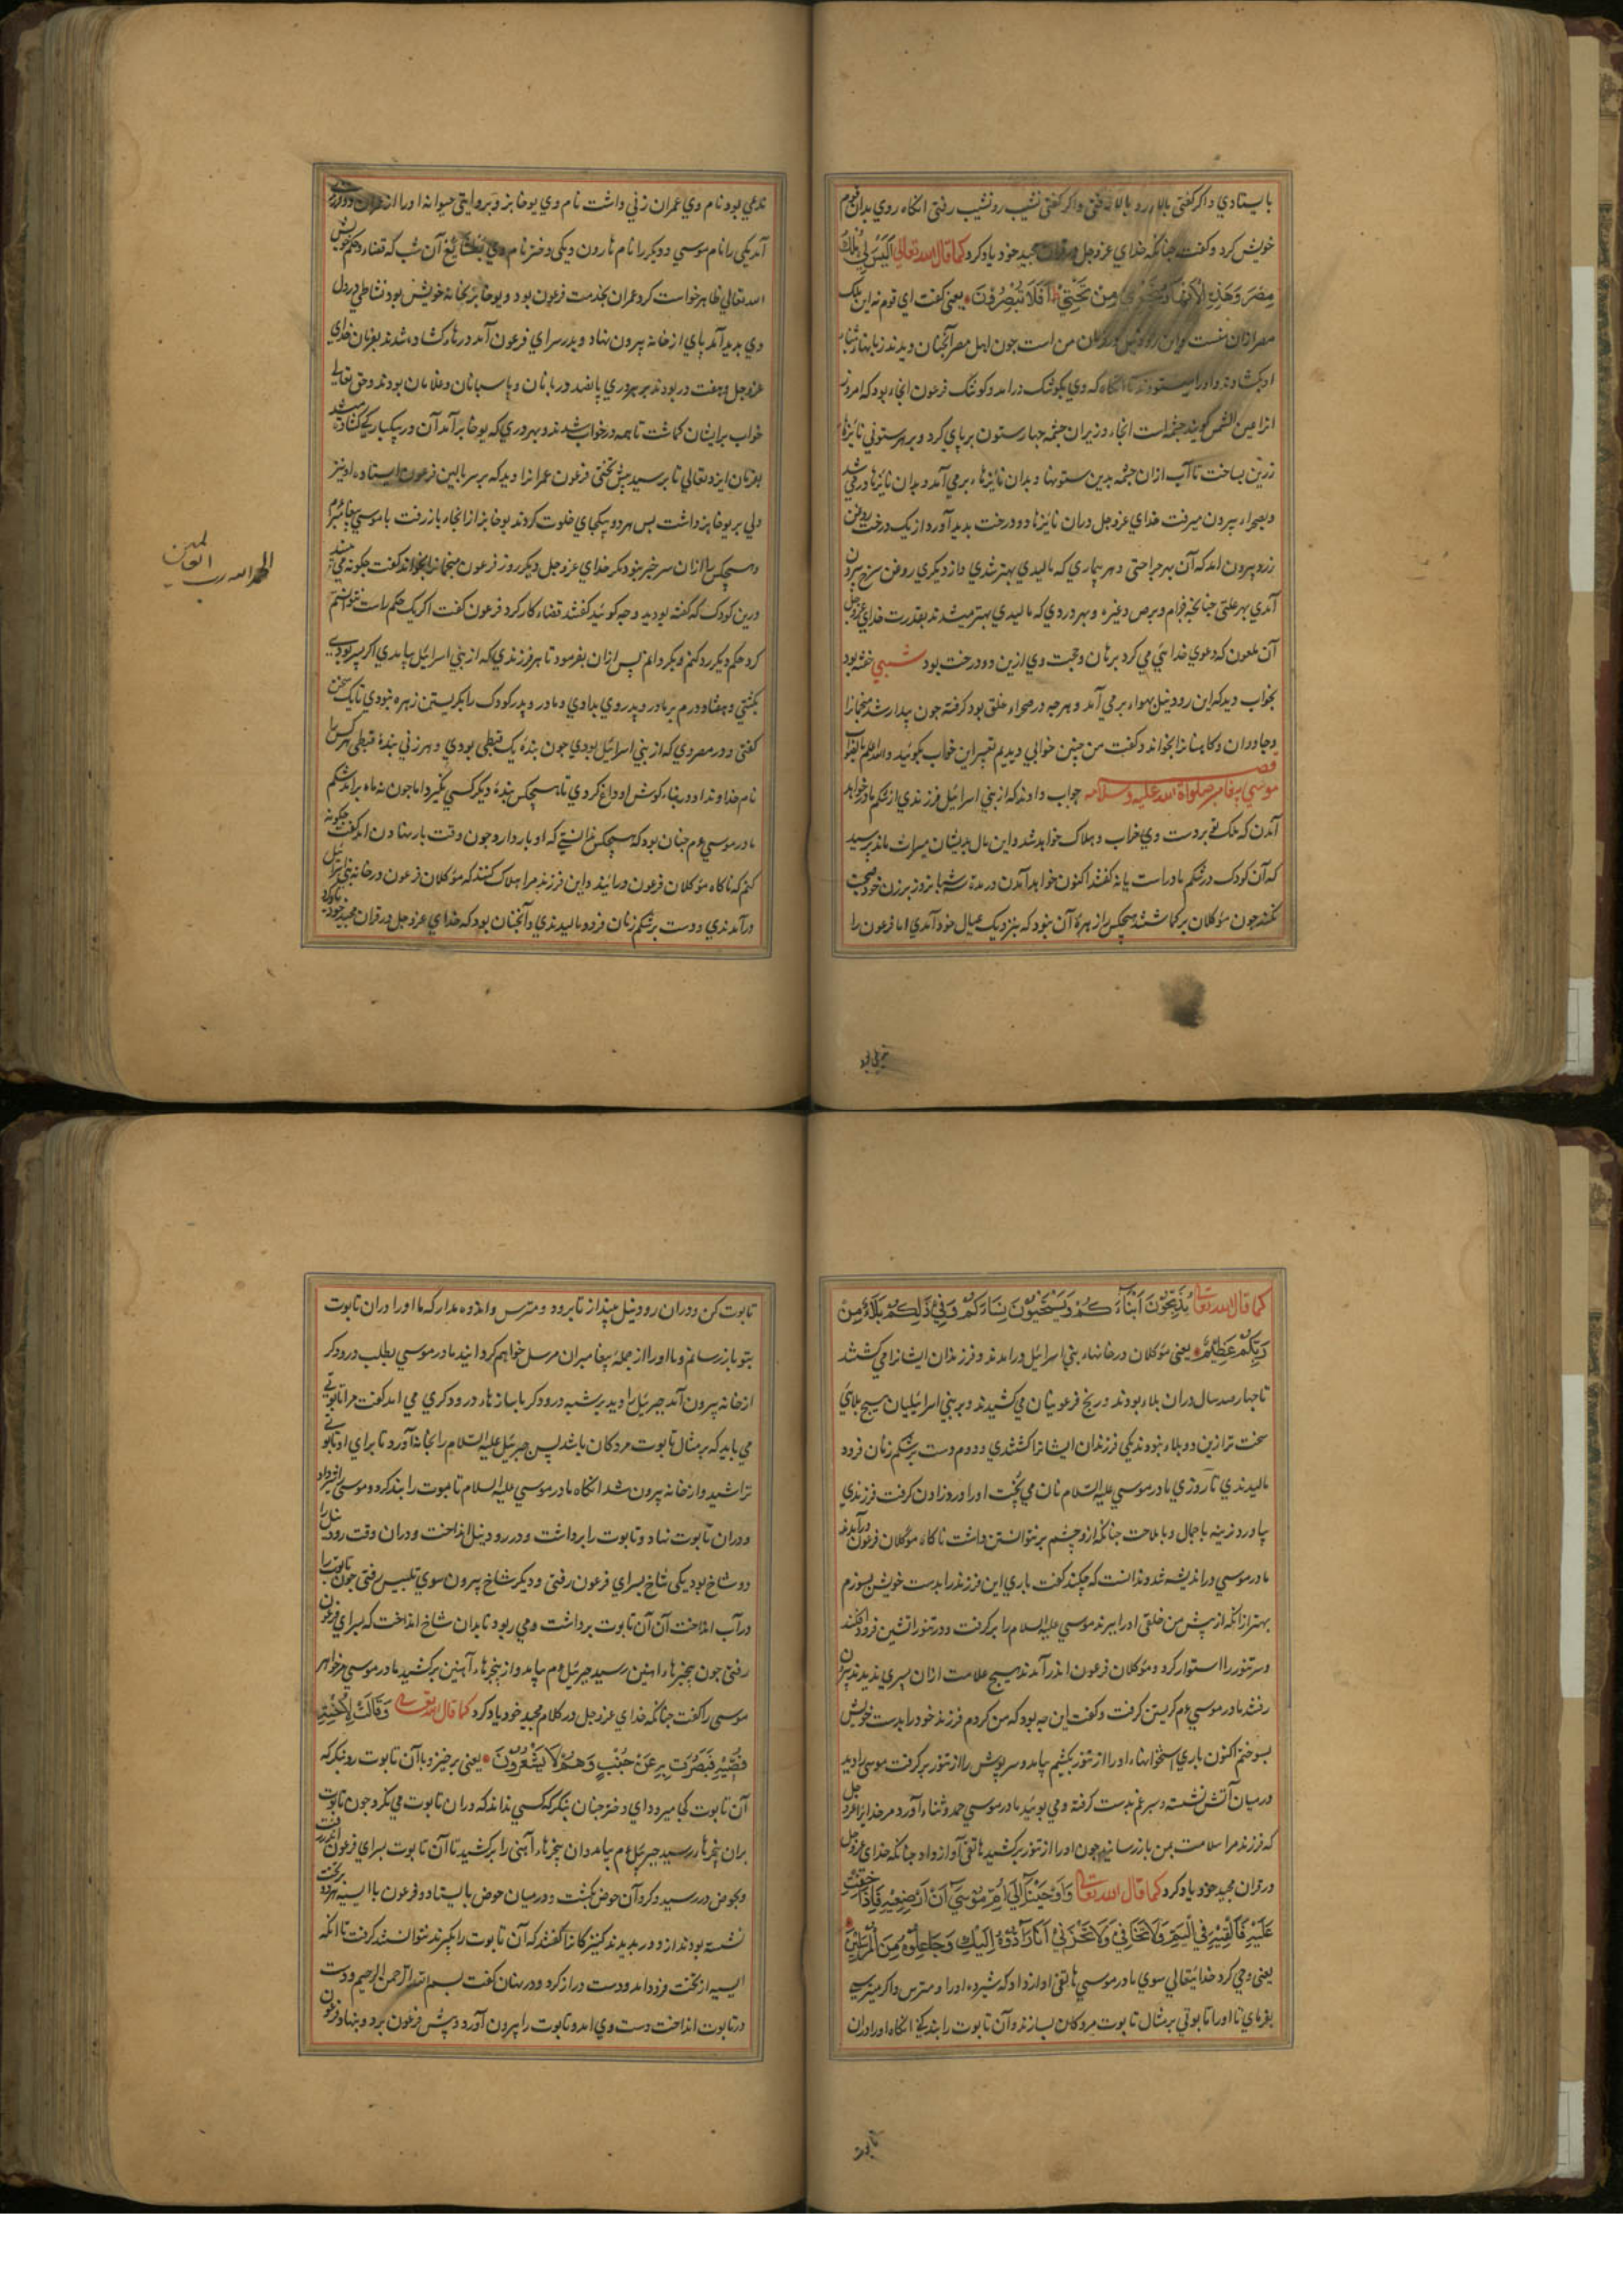 بایستادی و اگر گفتی بالا رو بالا رفتی و اگر گفتی نشیب رو نشیب رفتی انکاه روی بدان قوم
خویش کرد و گفت چنانکه خدای عز و جل در قران مجید خود یاد کرد کما قال الله تعالی اَلَیْسَ لِی مُلْكُ
مِصْرَ وَهَذِهِ الْاَنْهَارُ تَجْرِی مِنْ تَحْتِی اَفَلَا تُبْصِرُوْنَ یعنی گفت ای قوم نه این ملک
مصر ازان منست و این رود نیل بفرمان من است جون اهل مصر آنجنان دیدند زبانها بثنای
او بکشادند و او را میستودند تا انکاه که وی بکوشک درامد و کوشک فرعون انجا بود که امروز
انرا عین الشمس گویند جشمه است انجا و زیر ان جشمه جهار ستون بر پای کرد و بر هر ستونی نائزهٔ
زرین بساخت تا آب ازان جشمه بدین ستونها و بدان نائزها برمی آمد و بدان نائزها در می شد
و بصحرا بیرون میرفت خدای عز و جل دران نائزها دو درخت بدید آورد از یک درخت روغن
زرد بیرون امد که آن بهر جراحتی و هر بیماری که مالیدی بهتر شدی و از دیکری روغن سرخ بیرون
آمدی بهر علتی جنانجه جذام و برص و غیره و بهر دردی که مالیدی بهتر میشدند بقدرت خدای عز و جل
آن ملعون که دعوی خدائی می کرد برهان و حجت وی ازین دو درخت بود شبی خفته بود
بخواب دید که این رود نیل بهوا برمی آمد و هرجه در صحرا خلق بود کرفته جون بیدار شد منجمانرا
و جادوان و کاهنانرا بخواند و گفت من جنین خوابی دیدیم تعبیر این خواب بکوئید والله اعلم
قصه موسی پیغامبر صلواة الله علیه وسلامه جواب دادند که از بنی اسرائیل فرزندی از شکم مادر خواهد
آمدن که ملک تو بر دست وی خراب و هلاک خواهد شد و این مال بدیشان میراث ماند پرسید
که آن کودک در شکم مادر است یا نه گفتند اکنون خواهد آمدن در مدة سه شبانروز بر زن خود صحبت
نکنند جون موکلان برکماشتند هیچکس را زهرهٔ آن نبود که بنزدیک عیال خود آمدی اما فرعون را
ندیمی بود نام وی عمران زنی داشت نام وی یوخابز و بروایتی حیوانه او را از عمران دو فرزند
آمد یکی را نام موسی و دویکر را نام هارون و یکی دختر نام وی آن شب که قضا و حکم خویش
الله تعالی ظاهر خواست کرد عمران بخدمت فرعون بود و یوخابز بخانه خویش بود نشاطی در دل
وی بدید آمد پای از خانه بیرون نهاد و بدر سرای فرعون آمد درها کشاده شدند بفرمان خدای
عز و جل و هفت در بودند بر هر دری پانصد دربانان و پاسبانان و غلامان بودند و حق تعالی
خواب برایشان کماشت تا همه در خواب شدند و بهر دری که یوخابز آمد آن در بیکباریکی کشاده میشد
بفرمان ایزد تعالی تا برسید پیش تختی فرعون عمرانرا دید که بر سر بالین فرعون ایستاده او نیز
دلی بر یوخابز داشت بس هر دو بیکجای خلوت کردند یوخابز از انجا باز رفت با موسی پیغامبر ع م
و هیچکس را ازان سر خبر نبود مکر خدای عز و جل دیکر روز فرعون منجمانرا بخواند گفت جکونه می بینید
درین کودک که گفته بودید و جه کوئید گفتند قضاء کار کرد فرعون گفت اکر یک حکم راست نتوانستم
کرد حکم دیکر رد کنم و بگردانم پس ازان بفرمود تا هر فرزندی که از بنی اسرائیل بیامدی اکر پسر بودی
بکشتی و هفتاد درم بر مادر و پدر وی بدادی و مادر و پدر کودک را بکریستن زهره نبودی تا یک سخن
کفتی و در مصر دی که از بنی اسرائیل بودی جون بندهٔ یک قبطی بودی و هر زنی بندهٔ قبطی هر کس را
نام خداوند او در بناء کوش او داغ کردی تا هیچکس بندهٔ دیکر کسی نکیرد اما جون نه ماه برامد شکم
مادر موسی ع م جنان بود که هیچکس ندانستی که او بار دارد و جون وقت بار نهادن امد گفت جکونه
کنم که ناکاه موکلان فرعون درائید و این فرزند مرا هلاک کنند که موکلان فرعون در خانه بنی اسرائیل
درآمدندی و دست بر شکم زنان فرود مالیدندی و آنجنان بود که خدای عز و جل در قران مجید خود یاد کرد
الحمد لله رب العالمین
کما قال الله تعالی یُذَبِّحُوْنَ اَبْنَاءَ كُمْ وَیَسْتَحْیُوْنَ نِسَاءَكُمْ وَفِی ذَلِكُمْ بَلَاءٌ مِنْ
رَبِّكُمْ عَظِیْمٌ یعنی موکلان در خانهاء بنی اسرائیل درامدند و فرزندان ایشانرا می کشتند
تا جهار صد سال دران بلاء بودند و رنج فرعونیان می کشیدند و بر بنی اسرائیلیان هیچ بلائی
سخت تر ازین دو بلاء نبودند یکی فرزندان ایشانرا کشتندی و دوم دست بر شکم زنان فرود
مالیدندی تا روزی مادر موسی علیه السلام نان می پخت او را درد زادن کرفت فرزندی
بیاورد نرینه با جمال و با ملاحت جنانکه از و جشم بر نتوانستن داشت ناکاه موکلان فرعون درآمدند
مادر موسی در اندیشه شد و ندانست که جکند گفت باری این فرزند را بدست خویش بسوزم
بهتر ازانکه از پیش من خلقی او را ببرند موسی علیه السلام را بر کرفت و در تنور اتشین فرود افکند
و سر تنور را استوار کرد و موکلان فرعون اندر آمدند هیچ علامت ازان پسری ندیدند بیرون
رفتند مادر موسی ع م کریستن کرفت و گفت این جه بود که من کردم فرزند خود را بدست خویش
بسوختم اکنون باری استخوانهاء او را از تنور بکشیم بیامد و سرپوش را از تنور بر کرفت موسی را دید
در میان آتش نشسته و سبرغم بدست کرفته و می بوئید مادر موسی حمد و ثنا آورد مر خدایرا عز و جل
که فرزند مرا سلامت بمن باز رسانید جون او را از تنور برکشید هاتفی آواز داد جنانکه خدای عز و جل
در قران مجید خود یاد کرد کما قال الله تعالی وَاَوْحَیْنَا اِلَی اُمِّ مُوْسَی اَنْ اَرْضِعِیْهِ فَاِذَا خِفْتِ
عَلَیْهِ فَاَلْقِیْهِ فِی الْیَمِّ وَلَا تَخَافِی وَلَا تَحْزَنِی اِنَّا رَادُّوْهُ اِلَیْكِ وَجَاعِلُوْهُ مِنَ الْمُرْسَلِیْنَ
یعنی وحی کرد خدایتعالی سوی مادر موسی هاتفی اواز داد که شیر ده او را و مترس و اکر میترسی
بفرمای تا او را تابوتی بر مثال تابوت مردکان بسازند و آن تابوت را بند کن انکاه او را دران
تابوت
تابوت کن و دران رود نیل بینداز تا برود و مترس و اندوه مدار که ما او را دران تابوت
بتو باز رسانم و ما او را از جمله پیغامبران مرسل خواهم کردانید مادر موسی بطلب درودکر
از خانه بیرون آمد جبرئیل را دید بر شبه درودکر با سازهاء درودکری می امد گفت مرا تابوتی
می باید که بر مثال تابوت مردکان باشد پس جبرئیل علیه السلام را بخانه آورد تا برای او تابوتی
تراشید و از خانه بیرون شد انکاه مادر موسی علیه السلام تابوت را بند کرد و موسی را شیر داد
و دران تابوت نهاد و تابوت را برداشت و در رود نیل انداخت و دران وقت رود نیل را
دو شاخ بود یکی شاخ بسرای فرعون رفتی و دیکر شاخ بیرون سوی تلبیس رفتی جون تابوت را
در آب انداخت آن آن تابوت برداشت و می ربود تا بدان شاخ انداخت که بسرای فرعون
رفتی جون بنجرهاء اهنین رسید جبرئیل ع م بیامد و از بنجرهاء آهنین برکشید مادر موسی مر خواهر
موسی را گفت جنانکه خدای عز و جل در کلام مجید خود یاد کرد کما قال الله تعالی وَقَالَتْ لِاُخْتِهِ
قُصِّیْهِ فَبَصُرَتْ بِهِ عَنْ جُنُبٍ وَهُمْ لَا یَشْعُرُوْنَ یعنی برخیز و با آن تابوت رو بنکر که
آن تابوت کجا میرود ای دختر جنان بنکر که کسی نداند که دران تابوت می نکرد جون تابوت
بران بنجرها رسید جبرئیل ع م بیامد و ان بنجرهاء آهنی را برکشید تا آن تابوت بسرای فرعون اندر رفت
و بحوض در رسید و کرد آن حوض بکشت و در میان حوض باایستاد و فرعون با اسیه بر تخت
نشسته بودند از دور بدیدند کنیزکانرا گفتند که آن تابوت را بکیرند نتوانستند کرفت تا انکه
ایسیه از تخت فرود امد و دست دراز کرد و در نهان گفت بسم الله الرحمن الرحیم و دست
در تابوت انداخت دست وی امد و تابوت را بیرون آورد و پیش فرعون برد و بنهاد فرعون